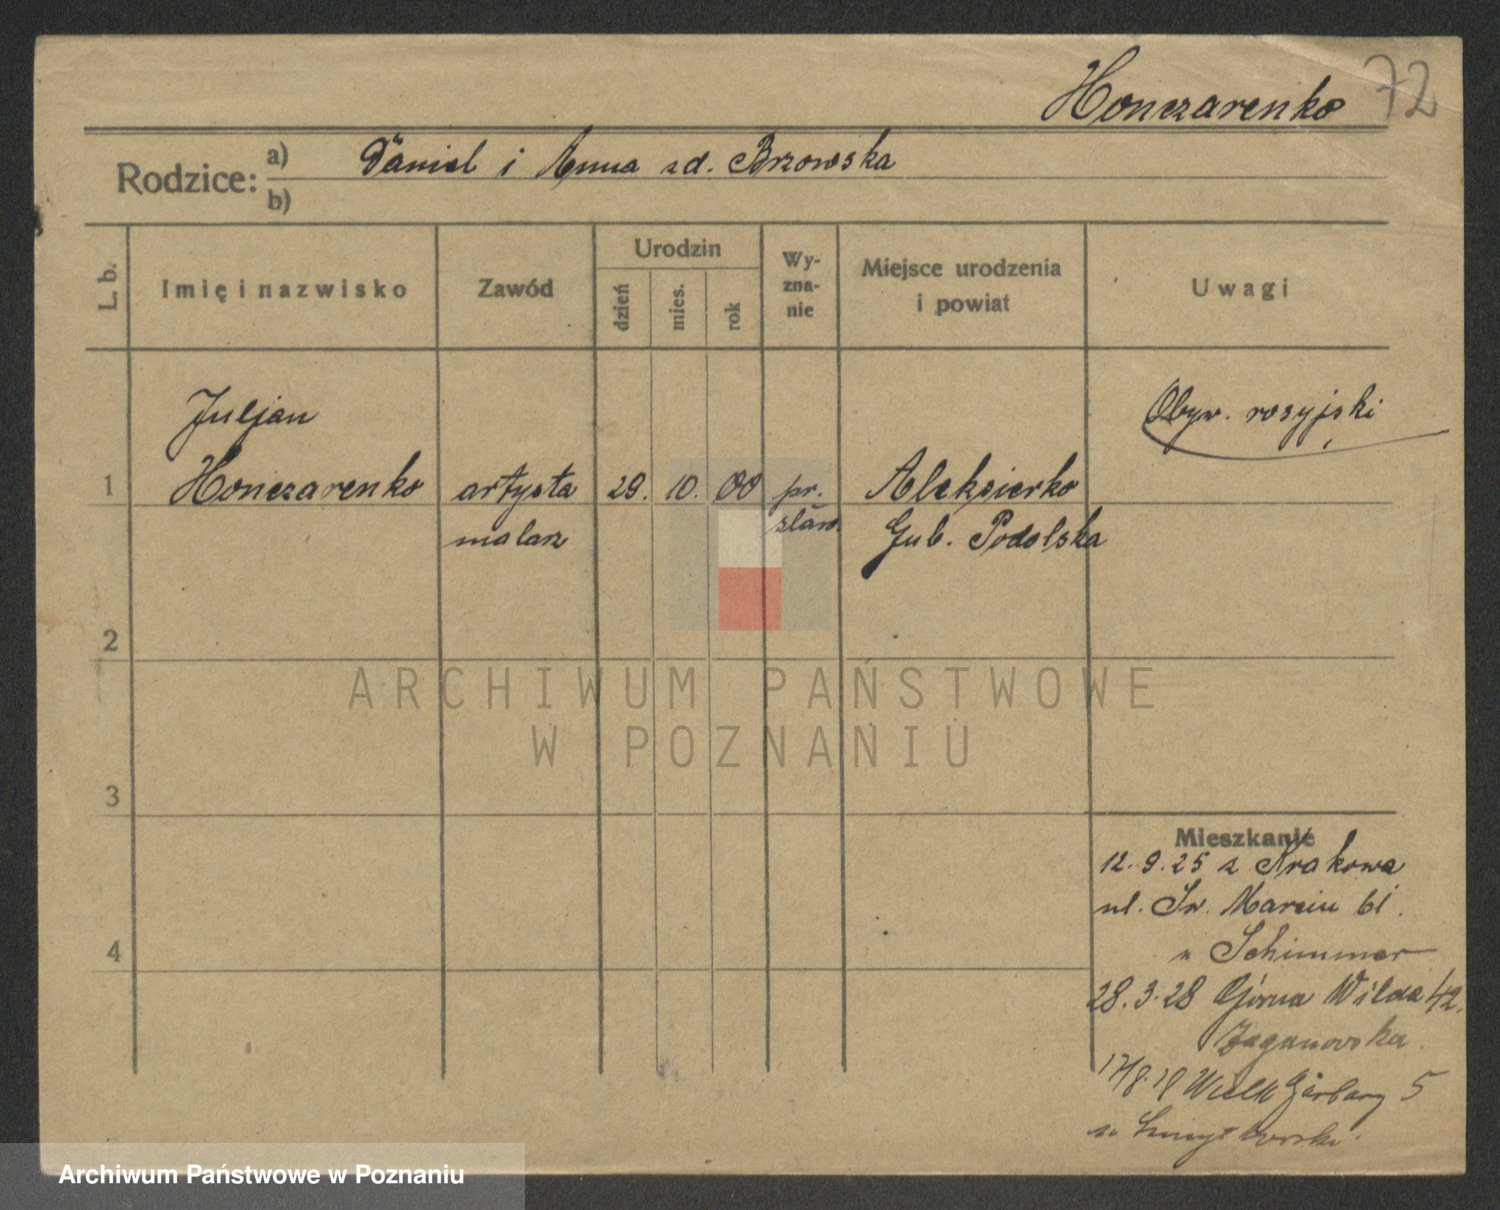 Honczarenko 72
Rodzice: a) Daniel i Anna zd. Brzowska
b)
L. b.
Imię i nazwisko
Zawód
Urodzin
dzień
mies.
rok
Wy-
zna-
nie
Miejsce urodzenia
i powiat
Uwagi
Juljan
Obyw. rosyjski
1 Honczarenko artysta 29. 10. 00 pr. Aleksierko
malarz sław. Gub. Podolska
2
ARCHIWUM PAŃSTWOWE
W POZNANIU
3
Mieszkanie
12.9.25 z Krakowa
ul. Św. Marcin 61.
u Schimmer
4
28.3.28 Górna Wilda 42.
Zaganowska
Wielk Garbary 5
Archiwum Państwowe w Poznaniu